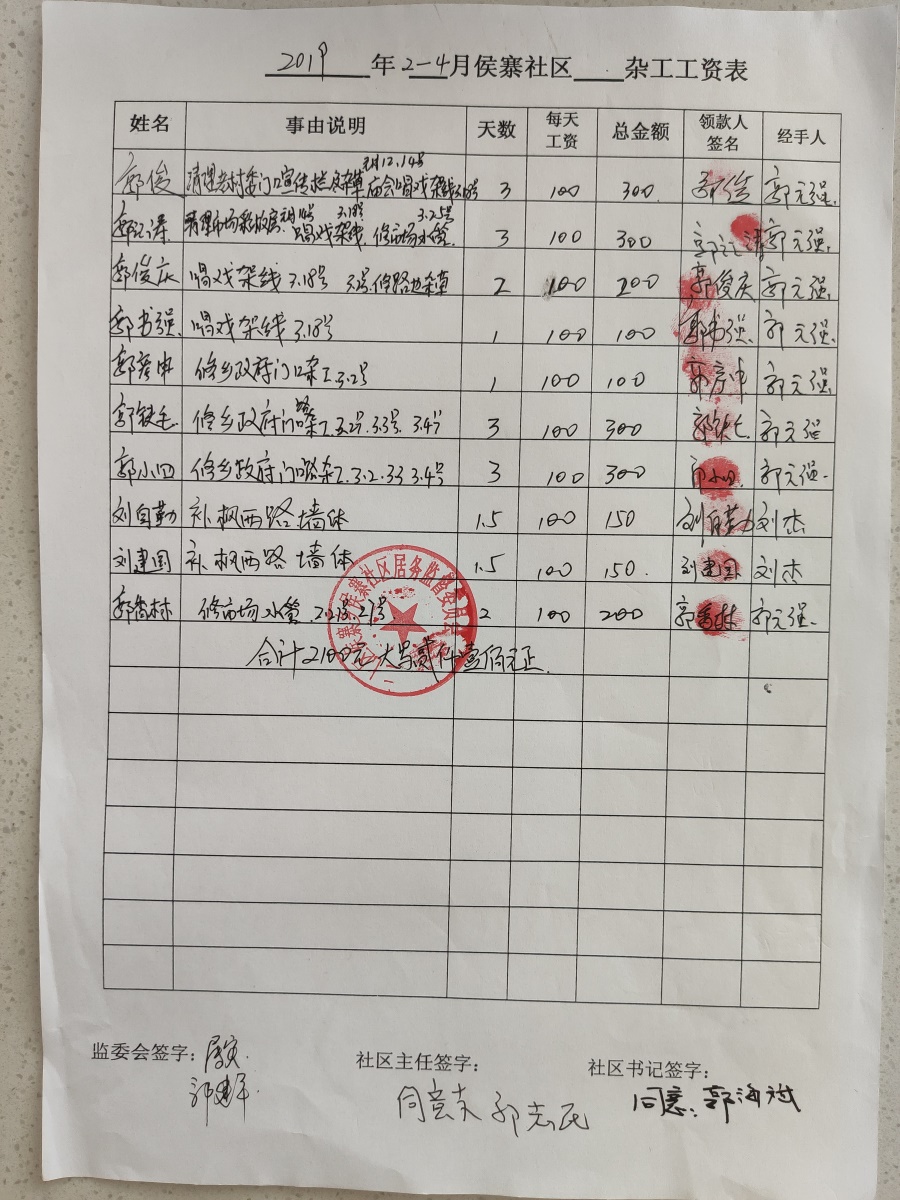 2019 年 2-4月侯寨社区 杂工工资表
姓名 事由说明 天数 每天工资 总金额 领款人签名 经手人
郭俊 清理 门口宣传栏 杂草 庙会唱戏架线 3 100 300 郭俊 郭元强
郭 涛 清理市场 唱戏架线 3.18号 修市场水管 3.25号 3 100 300 郭元强
郭俊庆 唱戏架线 3.18号 修路边杂草 2 100 200 郭俊庆 郭元强
郭书强 唱戏架线 3.18号 1 100 100 郭书强 郭元强
郭彦申 修乡政府门口杂工 3.2号 1 100 100 郭彦申 郭元强
郭铁毛 修乡政府门口路杂工 3.2号.3.3号.3.4号 3 100 300 郭铁毛 郭元强
郭小四 修乡政府门口路杂工.3.2.3.3 3.4号 3 100 300 郭小四 郭元强
刘自勤 补枫西路墙体 1.5 100 150 刘自勤 刘杰
刘建国 补枫西路墙体 1.5 100 150 刘建国 刘杰
郭香林 修市场水管 2 100 200 郭香林 郭元强
合计2100元 大写贰仟壹佰元正
侯寨社区居务监督委员会
监委会签字：属实
郭建军
社区主任签字：
同意支 郭志民
社区书记签字：
同意：郭海斌